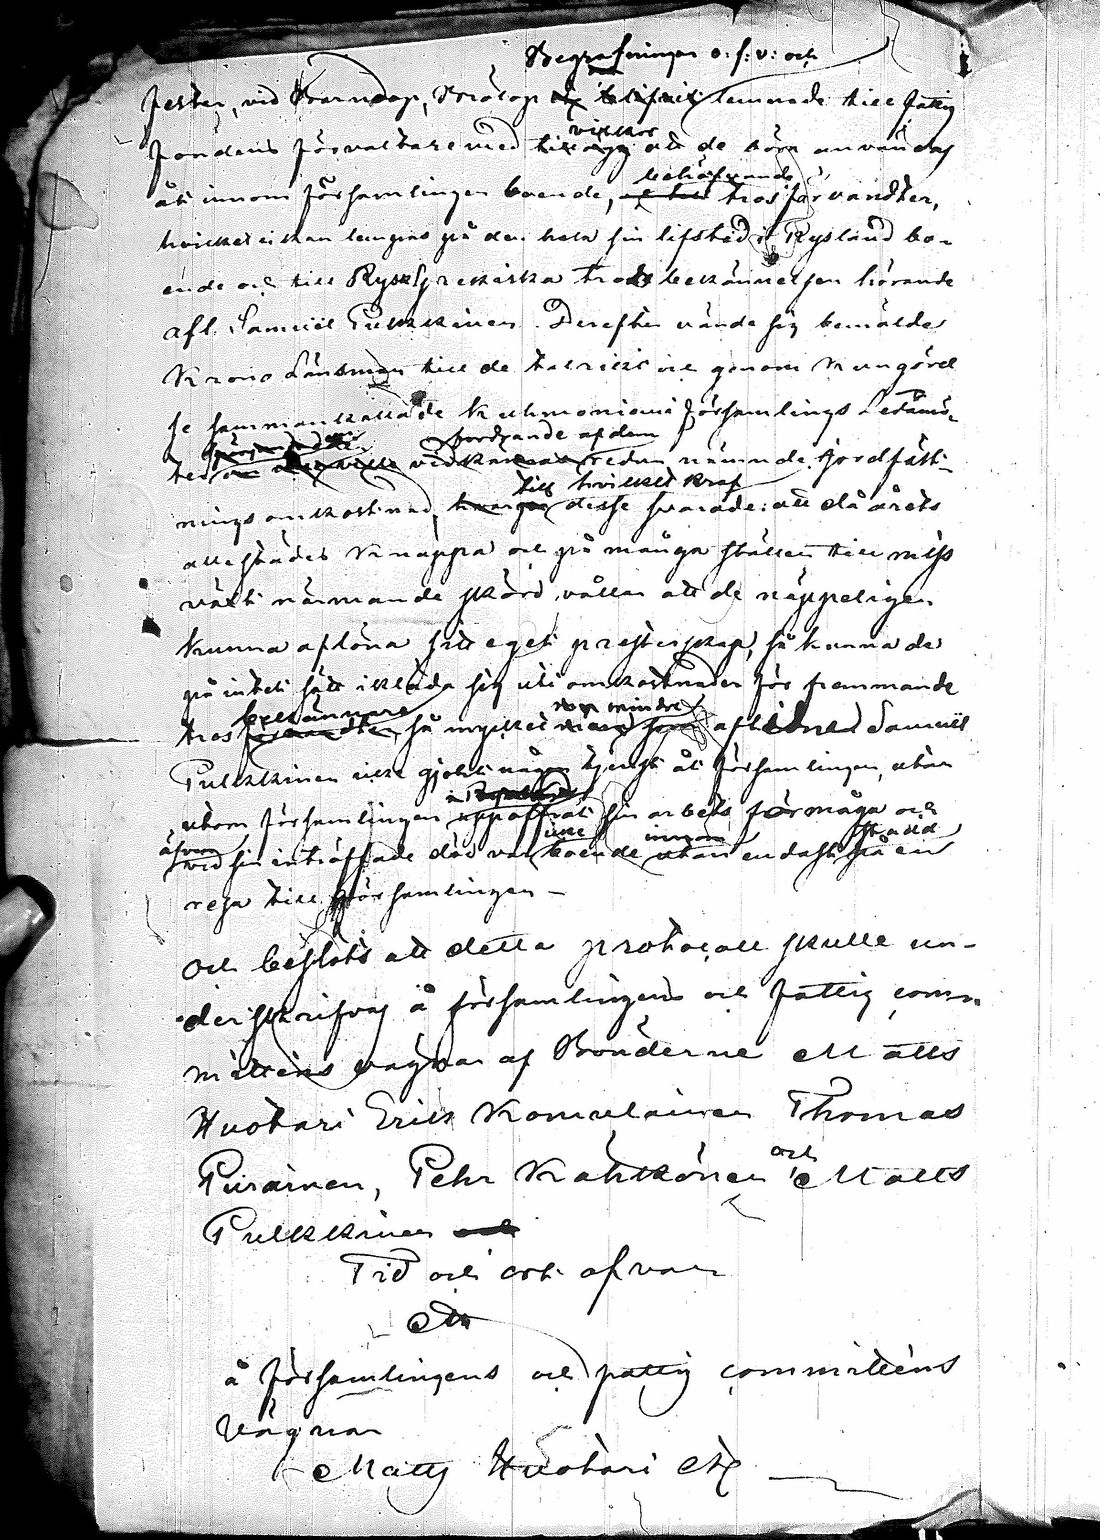 Begrafningar o: s: v: och
fester, vid Barndop, Brölop lemnade till fattig
fondens förvaltare med vilkor att de böra användas
åt innom församlingen boende, behöfvande trosförvandter,
hvilket ei kan lempas på den hela sin lifstid i Ryssland bo-
ende och till Rysk Grekiska trosbekännelsen hörande
afl. Samuel Pulkkinen. Derefter vände sig bemälde
Krono Länsman till de talrikt och genom kungörel
se sammankallade Kuhmoniemi församlings Ledamö-
ter gäldande af den redan nämnde jordfäst-
nings omkostnad, till hvilket kraf desse svarade: att då årets
allestädes knappa och på många ställen till miss
växt närmande skörd vållar att de näppeligen
kunna aflöna sitt eget presterskap, så kunna de
på intet sätt ikläda sig uti omkostnader för främmande
tros bekännare, så mycket mindre som aflidne Samuel
Pulkkinen icke gjort någon tjenst åt församlingen, utan
utom församlingen uppoffrat sin arbets förmåga och
äfven vid sin inträffade död var icke boende innom utan endast stadd på en
resa till församlingen –
och beslöts att detta protocoll skulle un-
derskrifvas å församlingens och fattig com-
mitteens vägnar af Bönderne Matts
Huotari Erik Komulainen Thomas
Piirainen, Pehr Kähkönen och Matts
Pulkkinen och
Tid och ort ofvan
å församlingens och fattig committeens
Vägnar
Matts Huotari